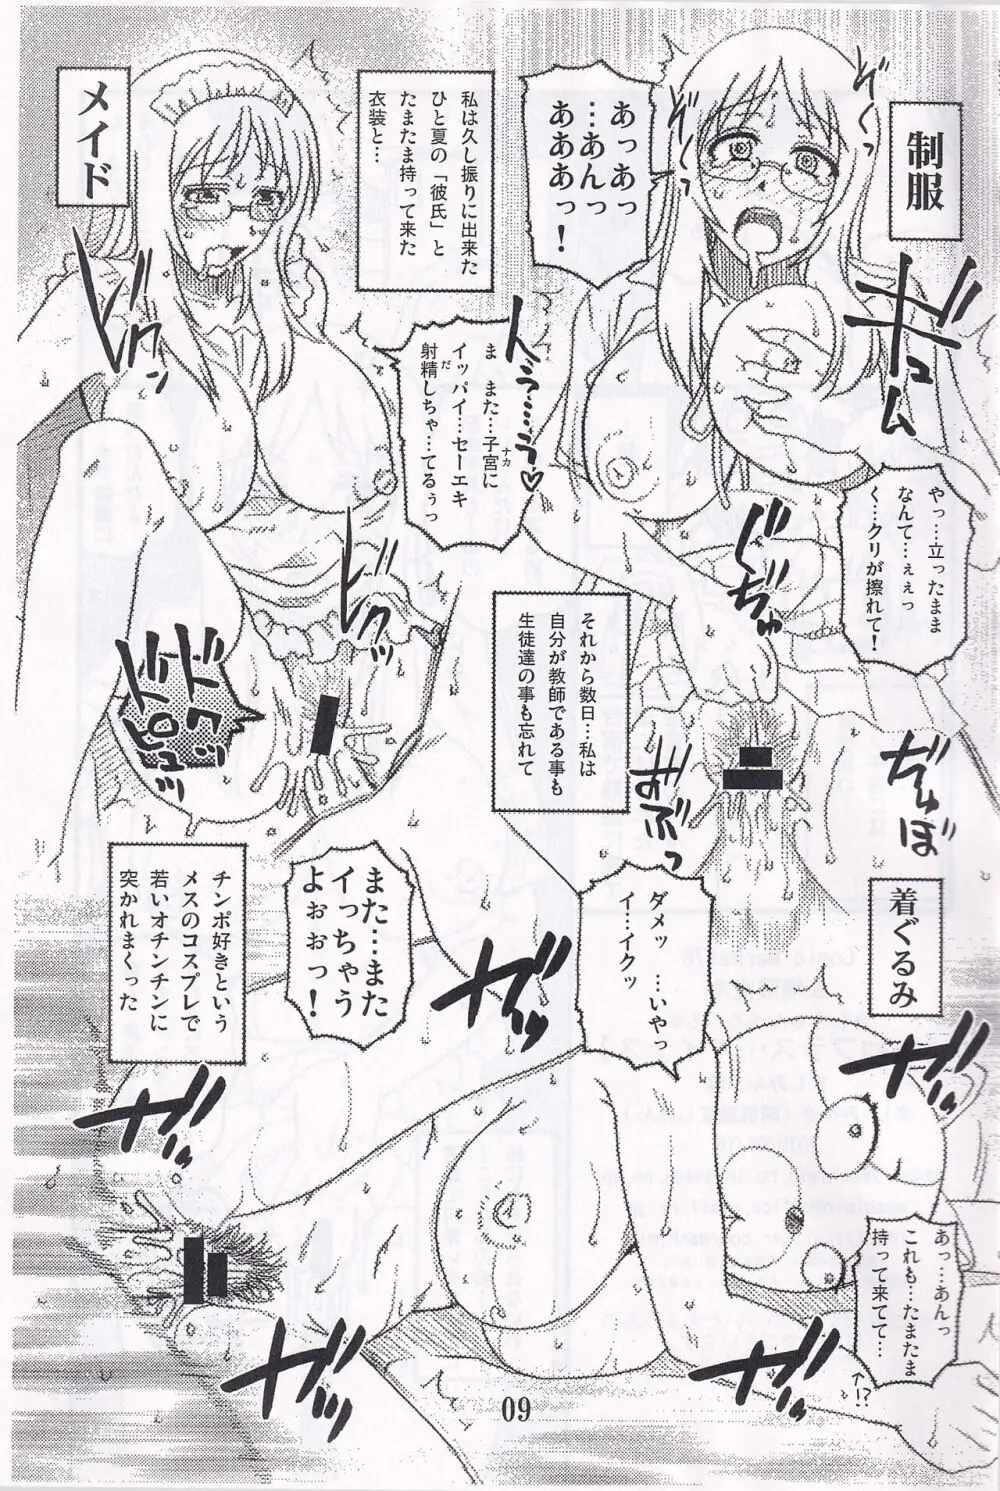 制服
あっあっ
…あんっ
あああっ！
ぞくぞくっ
ギュム
私は久し振りに出来た
ひと夏の「彼氏」と
たまたま持って来た
衣装と…
メイド
ドクン
んうぅ……う♡
ま また…子宮に
ナカ
イッパイ…セーエキ
射精しちゃ…てるぅっ
だ
やっ…立ったまま
なんて…ぇぇっ
く…クリが擦れて！
ぢゅぼ
それから数日…私は
自分が教師である事も
生徒達の事も忘れて
ドクッ
着ぐるみ
ダメッ …いやっ
イ…イクッ
また…また
イっちゃう
よぉぉっ！
チンポ好きという
メスのコスプレで
若いオチンチンに
突かれまくった
ガッ
ガッ
ガッ
ガッ
ガッ
あっ…あんっ
これも…たまたま
持って来てて…
↑!?
09